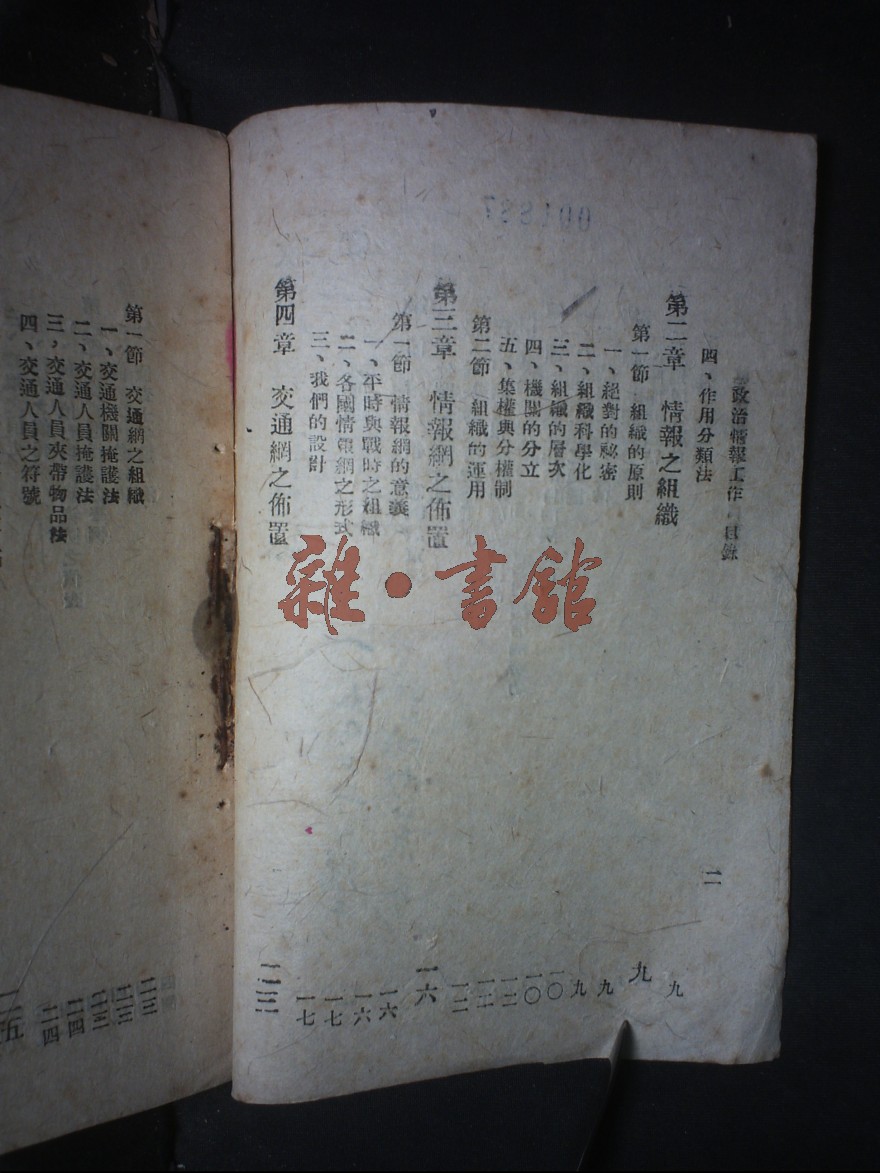 政治情報工作 目錄 二
四、作用分類法 九
第二章 情報之組織 九
第一節 組織的原則 九
一、絕對的祕密 九
二、組織科學化 一〇
三、組織的層次 一〇
四、機關的分立
五、集權與分權制
第二節 組織的運用
第三章 情報網之佈置 一六
第一節 情報網的意義 一六
一、平時與戰時之組織 一六
二、各國情報網之形式 一七
三、我們的設計 一七
第四章 交通網之佈置
第一節 交通網之組織
一、交通機關掩護法
二、交通人員掩護法
三、交通人員夾帶物品法 二四
四、交通人員之符號 二四
雜·書館
001887